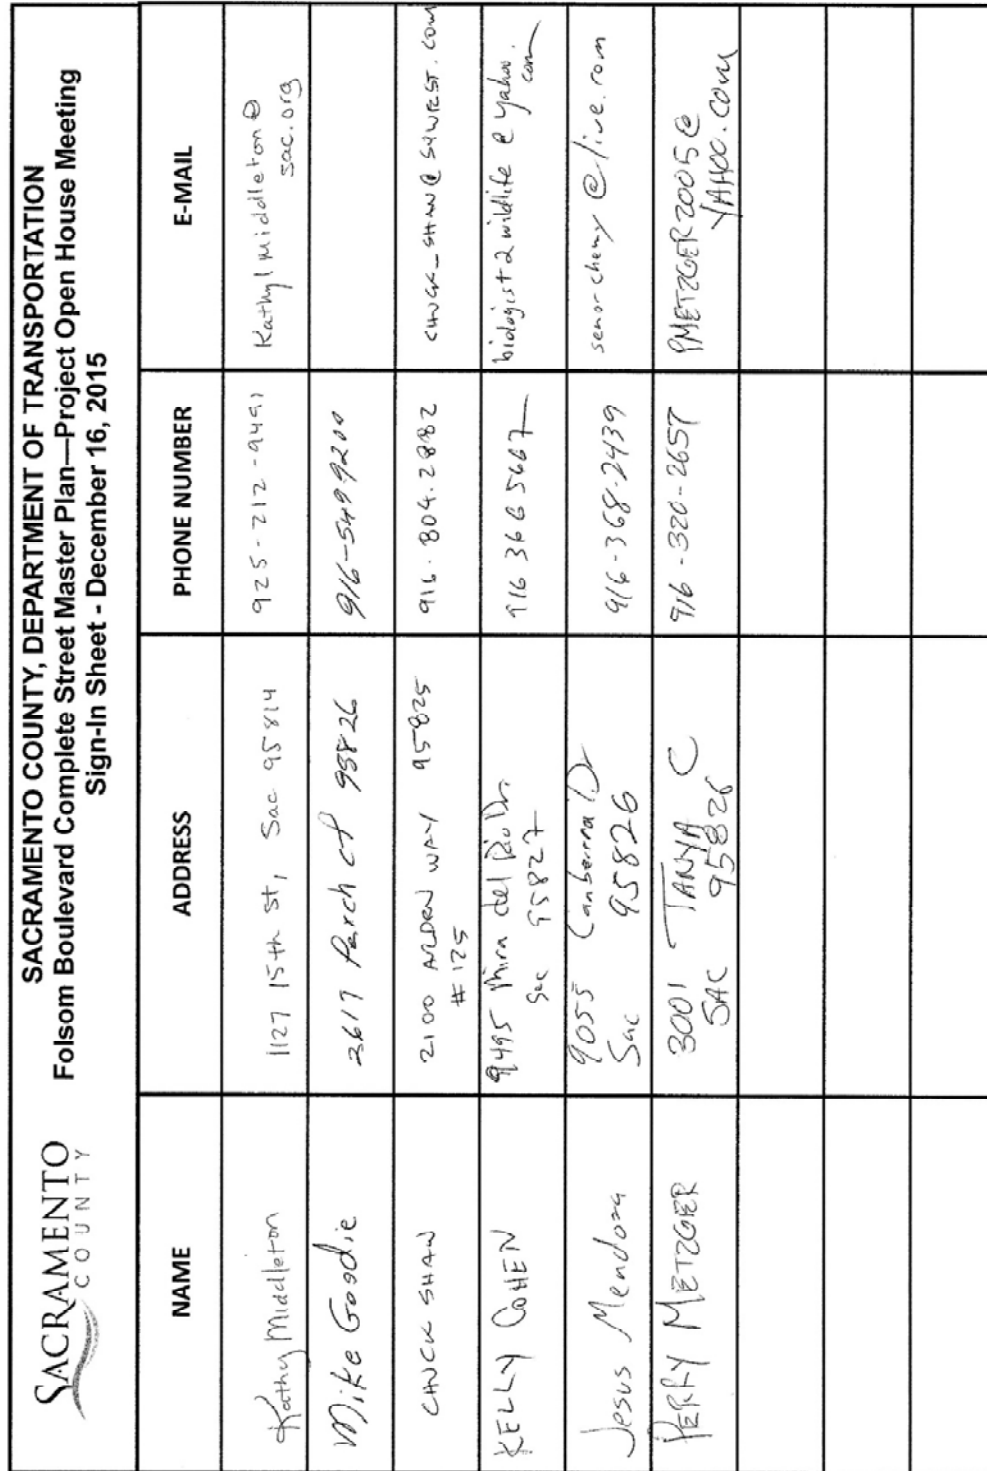 SACRAMENTO
COUNTY
SACRAMENTO COUNTY, DEPARTMENT OF TRANSPORTATION
Folsom Boulevard Complete Street Master Plan—Project Open House Meeting
Sign-In Sheet - December 16, 2015
NAME ADDRESS PHONE NUMBER E-MAIL
Kathy Middleton 1127 15th St, Sac 95814 925-212-9491 Kathylmiddleton@
sac.org
Mike Goodie 2617 Parch ct 95826 916-5499200
CHUCK SHAW 2100 ARDEN WAY 95825 916.804.2882 CHUCK_SHAW@S4WEST.COM
#125
KELLY COHEN 9495 Mira del Rio Dr 916 366 5667 biologist2wildlife@yahoo.
Sac 95827 com
Jesus Mendoza 9055 Canberra Dr 916-368-2439 senorchemy@live.com
Sac 95826
PERRY METZGER 3001 TANYA C 916-320-2657 PMETZGER2005@
SAC 95826 YAHOO.COM